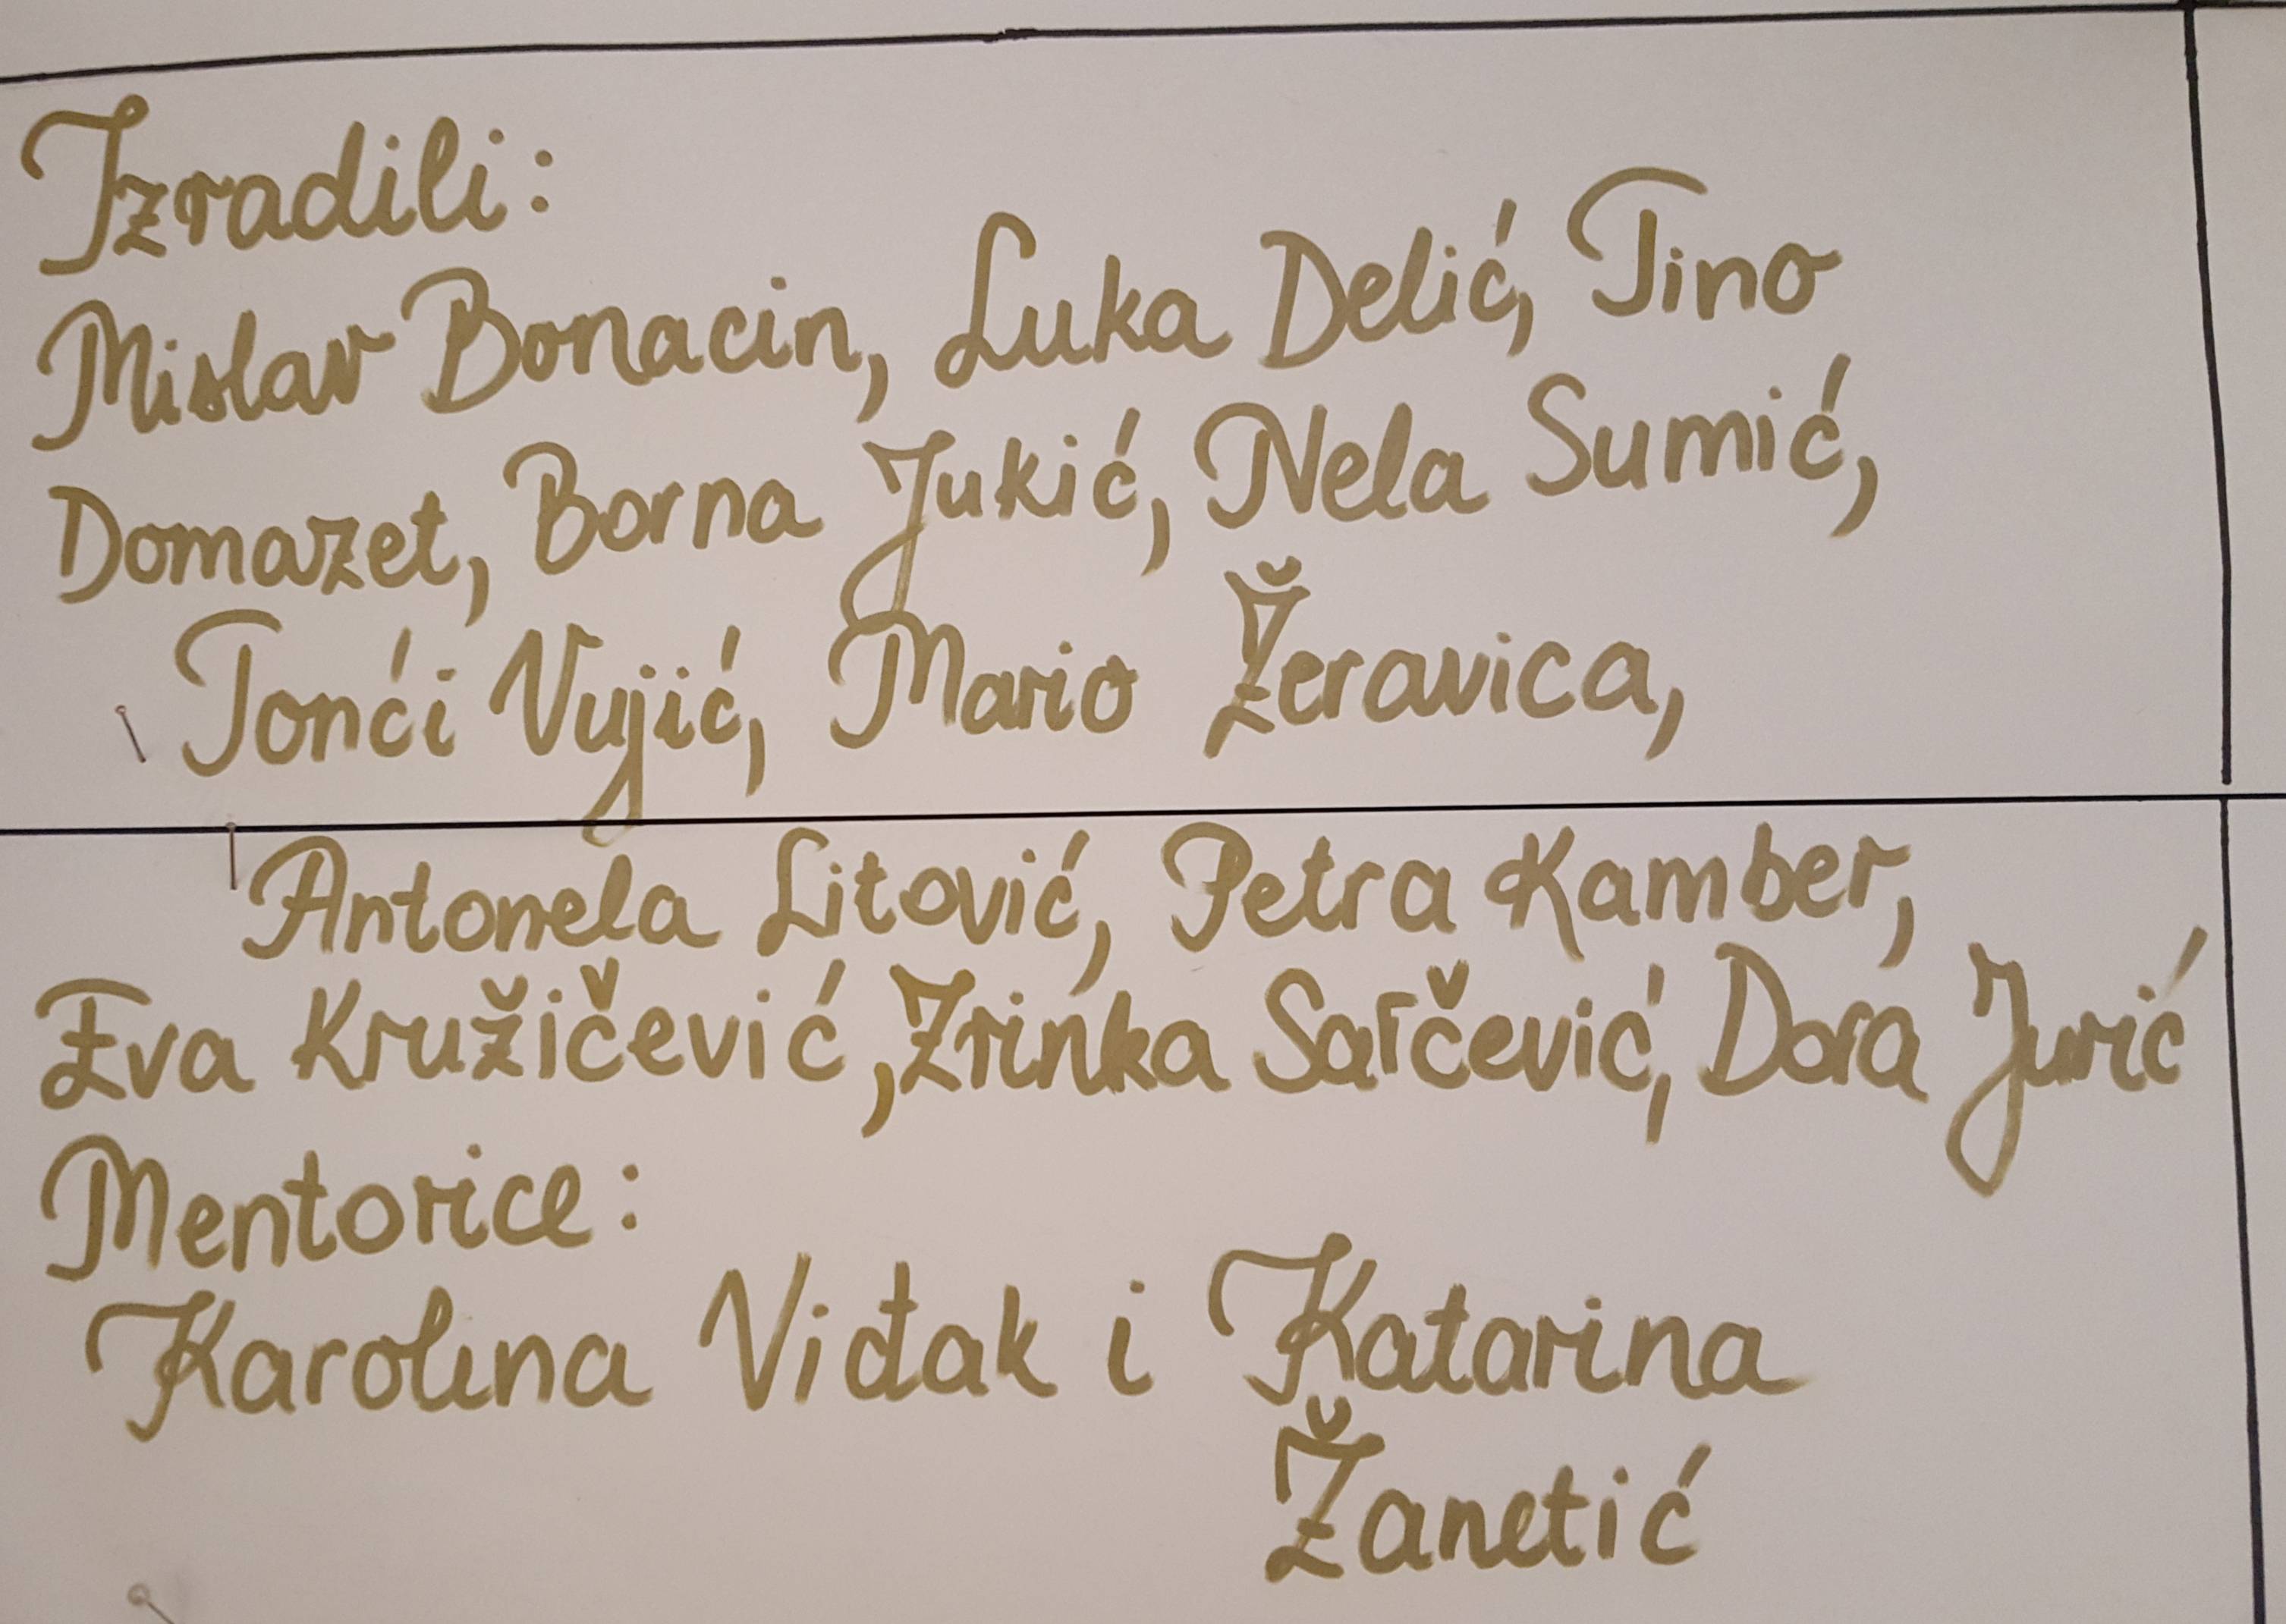 Izradili:
Mislav Bonacin, Luka Delić, Tino
Domazet, Borna Jukić, Nela Sumić,
Tonći Vujić, Mario Žeravica,
Antonela Litović, Petra Kamber,
Eva Kružičević, Zrinka Sarčević, Dora Jurić
Mentorice:
Karolina Viđak i Katarina
Žanetić